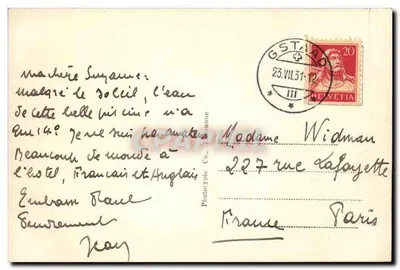 GSTAAD
23.VII.31-12
III
20
HELVETIA
ma chère Suzanne:
malgré le soleil, l'eau
de cette belle piscine n'a
que 14° Je ne suis pas
Beaucoup de monde à
l'hotel, Français et Anglais
Embrasse
Tendrement
Jean
Phototypie Co., Lausanne
Madame Widman
227 rue Lafayette
Paris
France